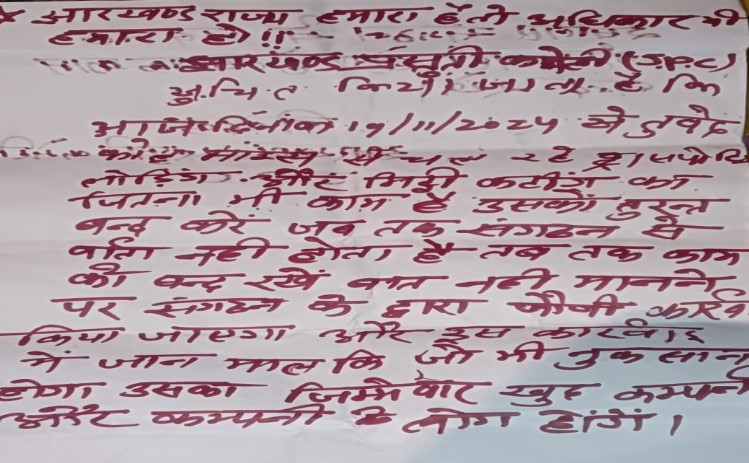 * झारखण्ड राज्य हमारा है तो अधिकार भी
हमारा हो !!
झारखण्ड प्रस्तुती कमेटी (JPC)
सुचित किया जाता है कि
आज दिनांक 19/11/2024 से
कोल माइन्स में चल रहे
लोडिंग और मिट्टी कटींग का
जितना भी काम है उसको तुरन्त
बन्द करें जब तक संगठन से
वार्ता नही होता है तब तक काम
को बन्द रखें बात नही मानने
पर संगठन के द्वारा फौजी
किया जाएगा और इस कारवाई
में जान माल कि जो भी नुकसान
होगा उसका जिम्मेवार खुद कम्पनी
और कम्पनी के लोग होंगें ।